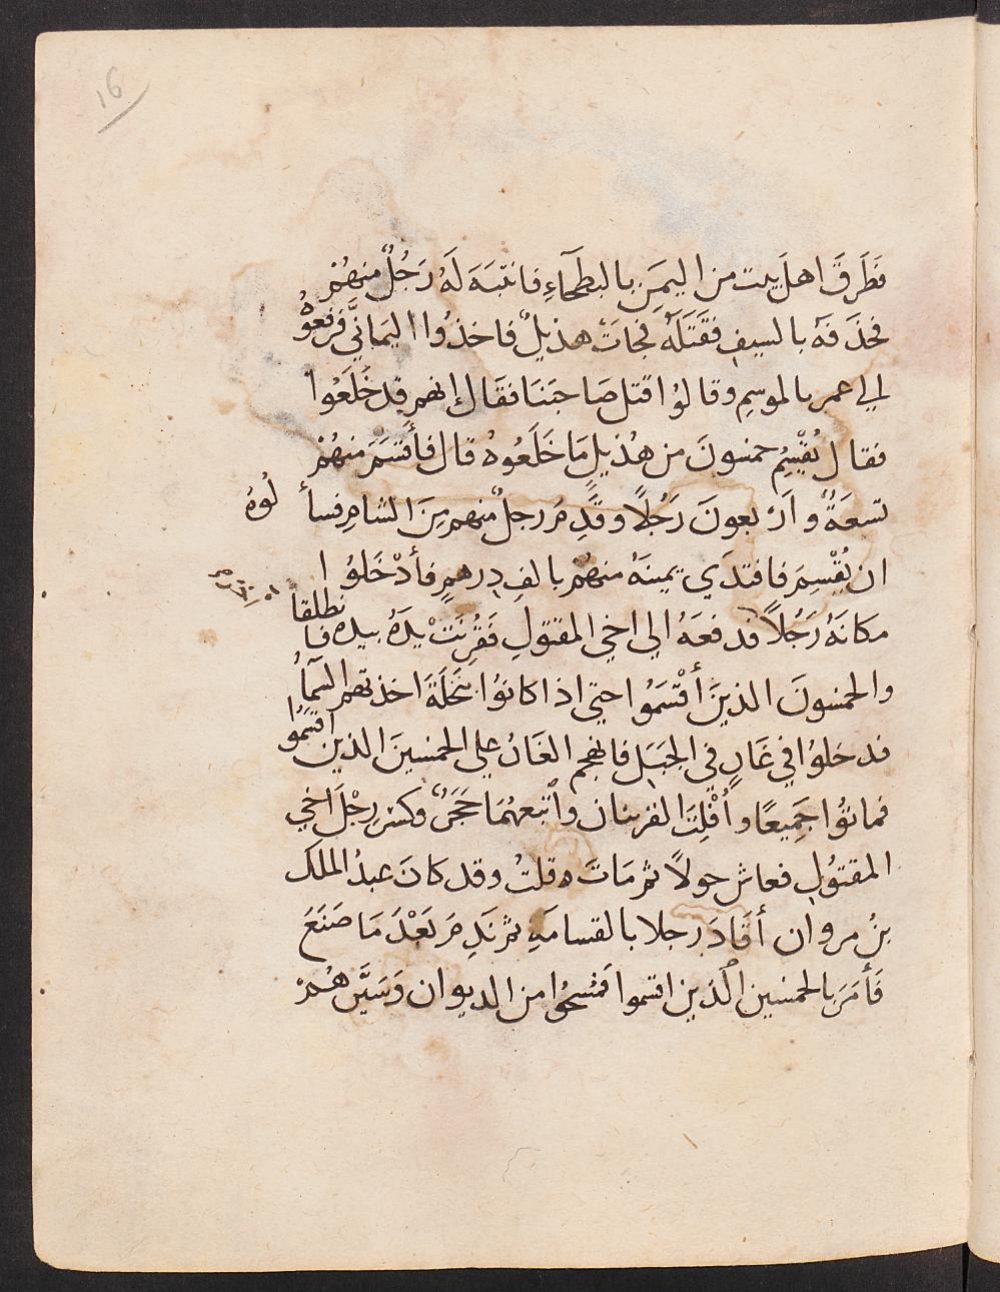 16
فَطَرَقَ اهلَ بيت من اليمَنِ بالبطحَآءِ فانتبَهَ لَهُ رَجُلٌ منهُمْ
فحذَفهُ بالسيفِ فقَتَلَهُ فجاتْ هذيلٌ فاخذُوا اليَمانِيَّ فرفعوْهُ
الي عمر بالموسِمِ وقالوُا قتل صَاحبَنَا فقَال إنهم قد خَلَعُوا
فقال يُقْسِمُ خمسونَ من هُذيلٍ مَا خَلَعُوهُ قال فأقسَمَ منهُمْ
تسعَةٌ وارْبعونَ رَجُلًا وقَدِمَ رجلٌ منهم مِنَ الشامِ فسألُوهُ
ان يُقْسِمَ فافتدَي يمينَهُ منهُم بالفِ درهمٍ فأدْخَلوُا
مكانَهُ رَجُلًا فدفعَهُ الي اخي المقتولِ فَقُرِنَتْ يدَهُ بيده فانطلقا
والخمسُونَ الذينَ أقْسَمُوا حتي اذا كانوُا بنَخلَةَ اخذتهم السمآءُ
فدخلوُا في غَارٍ في الجبَلِ فانهجم الغَارُ علي الخمسينَ الذين اقسَمُوا
فماتوُا جَمِيعًا وأُفْلِتَ القرينان واتبعهُمَا حَجَرٌ وكسَر رِجْلَ اخي
المقتوُلِ فعاش حولًا ثم مَاتَ ه قلتُ وقد كانَ عبدُ الملك
بنُ مروان أقَادَ رجلا بالقسامَةِ ثم نَدِمَ بَعْدَ مَا صَنَعَ
فَأَمَرَ بالخمسين الذين اقسموا فمُحُوا من الديوان وَسَيَّرهُمْ